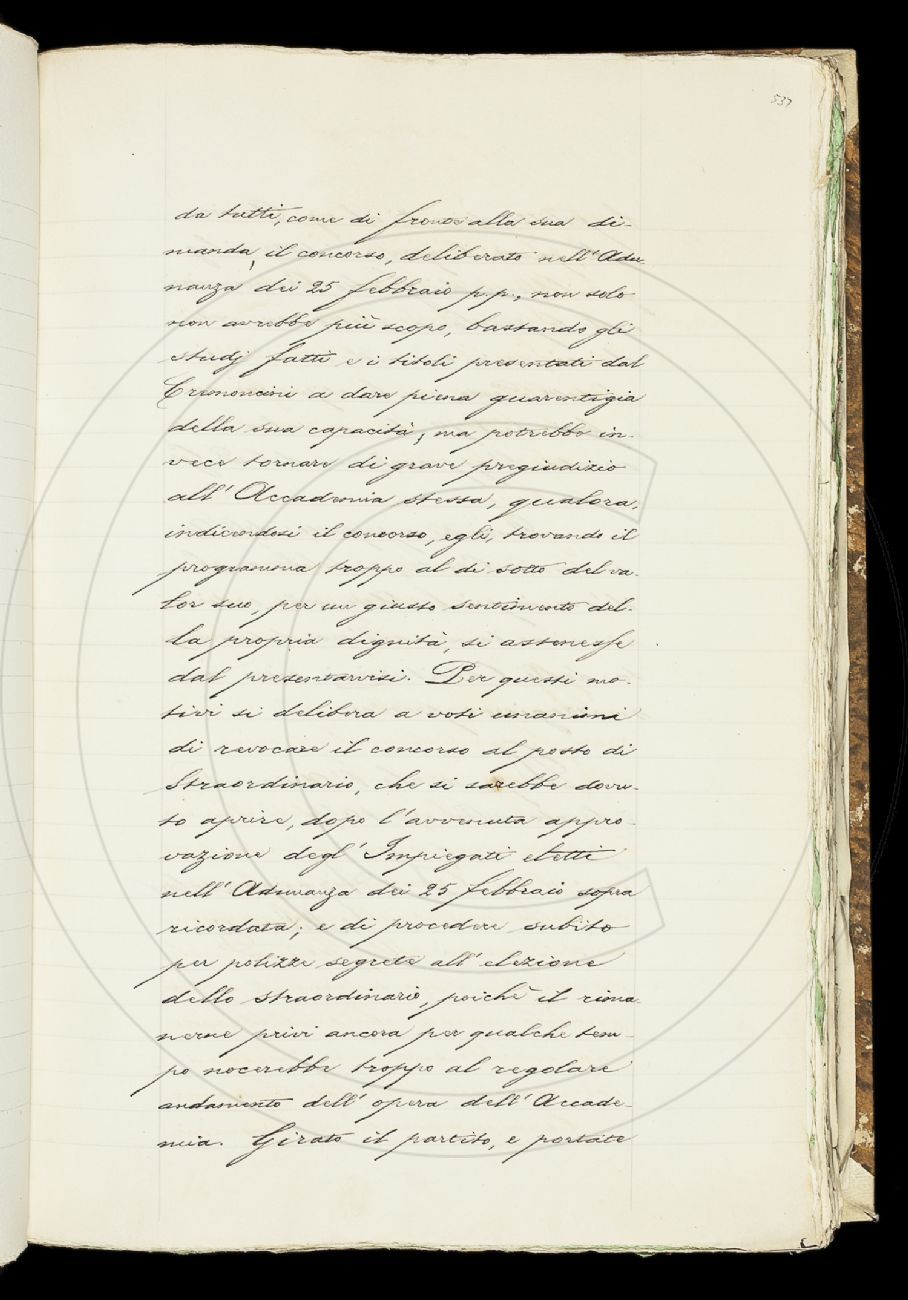 537
da tutti, come di fronte alla sua di-
manda, il concorso, deliberato nell'Adu-
nanza dei 25 febbraio p.p., non solo
non avrebbe più scopo, bastando gli
studj fatti e i titoli presentati dal
Cremoncini a dare piena guarentigia
della sua capacità; ma potrebbe in-
vece tornare di grave pregiudizio
all'Accademia stessa, qualora,
indicendosi il concorso, egli, trovando il
programma troppo al di sotto del va-
lor suo, per un giusto sentimento del-
la propria dignità, si astenesse
dal presentarvisi. Per questi mo-
tivi si delibera a voti unanimi
di revocare il concorso al posto di
Straordinario, che si sarebbe dovu-
to aprire, dopo l'avvenuta appro-
vazione degl'Impiegati eletti
nell'Adunanza dei 25 febbraio sopra
ricordata; e di procedere subito
per polizze segrete all'elezione
dello straordinario, poichè il rima-
nerne privi ancora per qualche tem-
po nocerebbe troppo al regolare
andamento dell'opera dell'Accade-
mia. Girato il partito, e portate